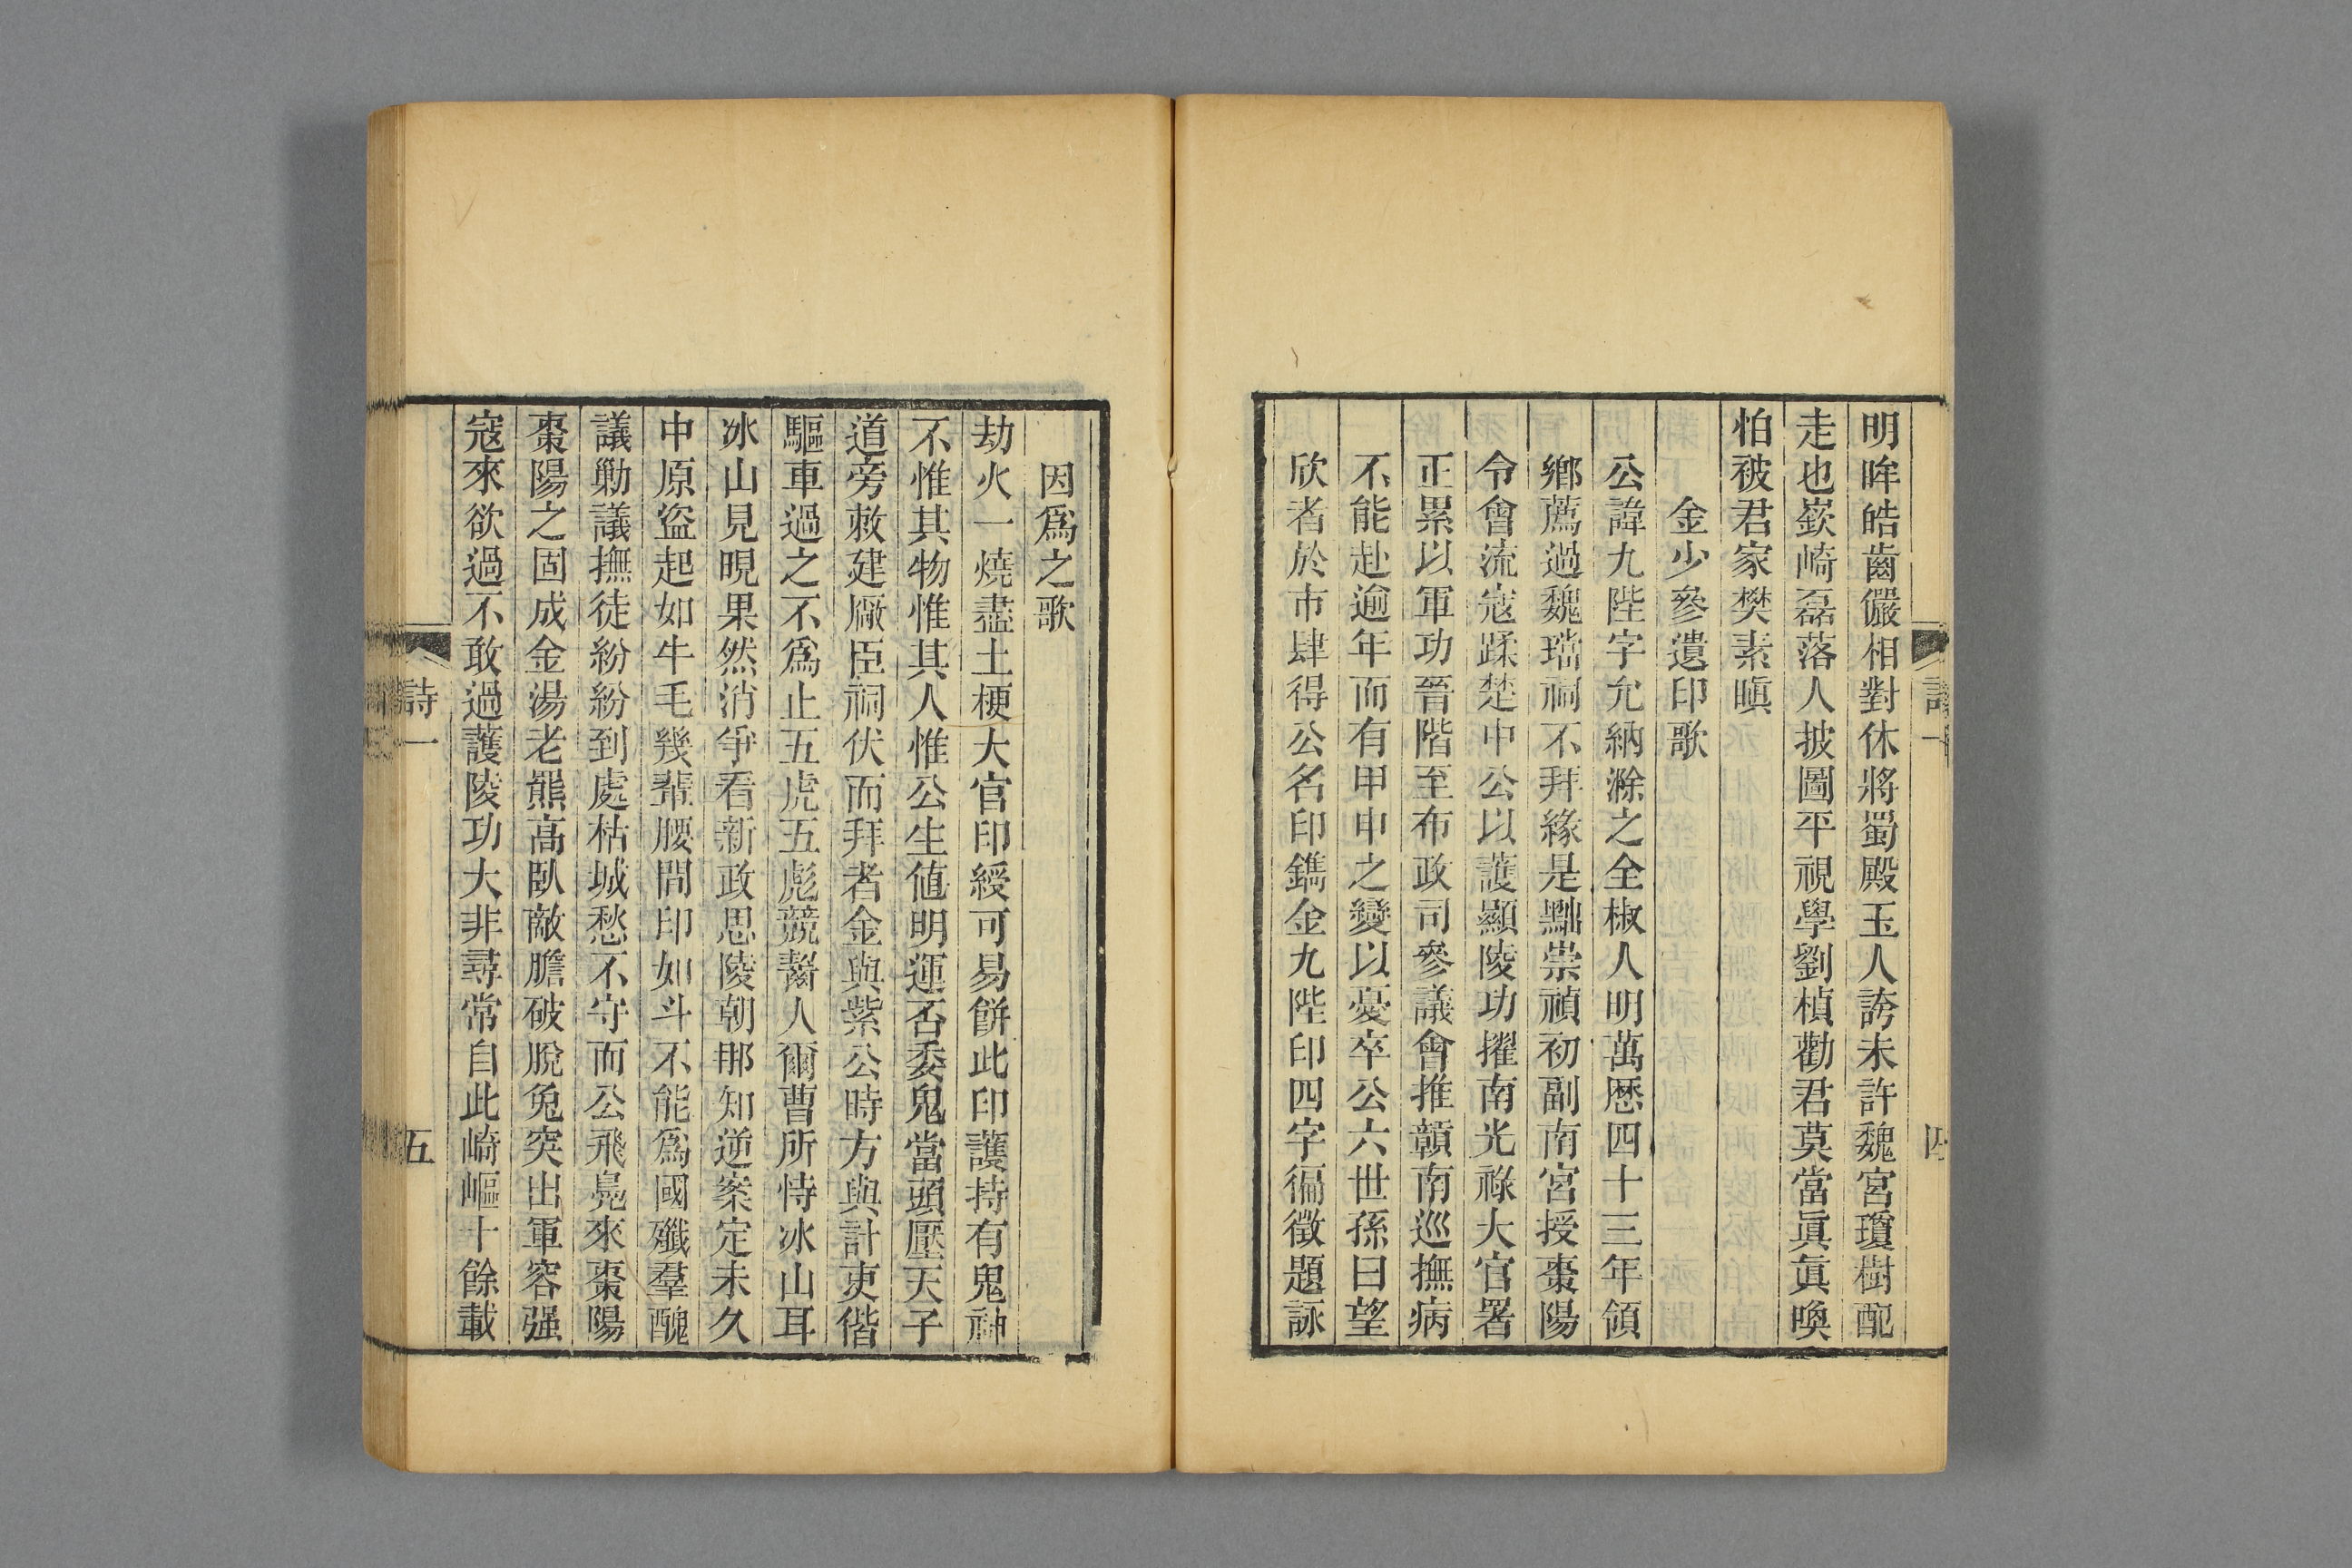 明眸皓齒儼相對休將蜀殿玉人誇未許魏宮瓊樹配
走也嶔崎磊落人披圖平視學劉楨勸君莫當眞眞喚
怕被君家樊素瞋
金少參遺印歌
公諱九陛字允納滁之全椒人明萬厯四十三年領
鄉薦過魏璫祠不拜緣是黜崇禎初副南宮授棗陽
令會流寇蹂楚中公以護顯陵功擢南光祿大官署
正累以軍功晉階至布政司參議會推贛南巡撫病
不能赴逾年而有甲申之變以憂卒公六世孫曰望
欣者於市肆得公名印鐫金九陛印四字徧徵題詠
詩一
四
因爲之歌
劫火一燒盡土梗大官印綬可易餅此印護持有鬼神
不惟其物惟其人惟公生値明運否委鬼當頭壓天子
道旁敕建廠臣祠伏而拜者金與紫公時方與計吏偕
驅車過之不爲止五虎五彪競齧人爾曹所恃冰山耳
冰山見晛果然消爭看新政思陵朝那知逆案定未久
中原盜起如牛毛幾輩腰間印如斗不能爲國殲羣醜
議勦議撫徒紛紛到處枯城愁不守而公飛鳧來棗陽
棗陽之固成金湯老熊高臥敵膽破脫兔突出軍容强
寇來欲過不敢過護陵功大非尋常自此崎嶇十餘載
詩一
五